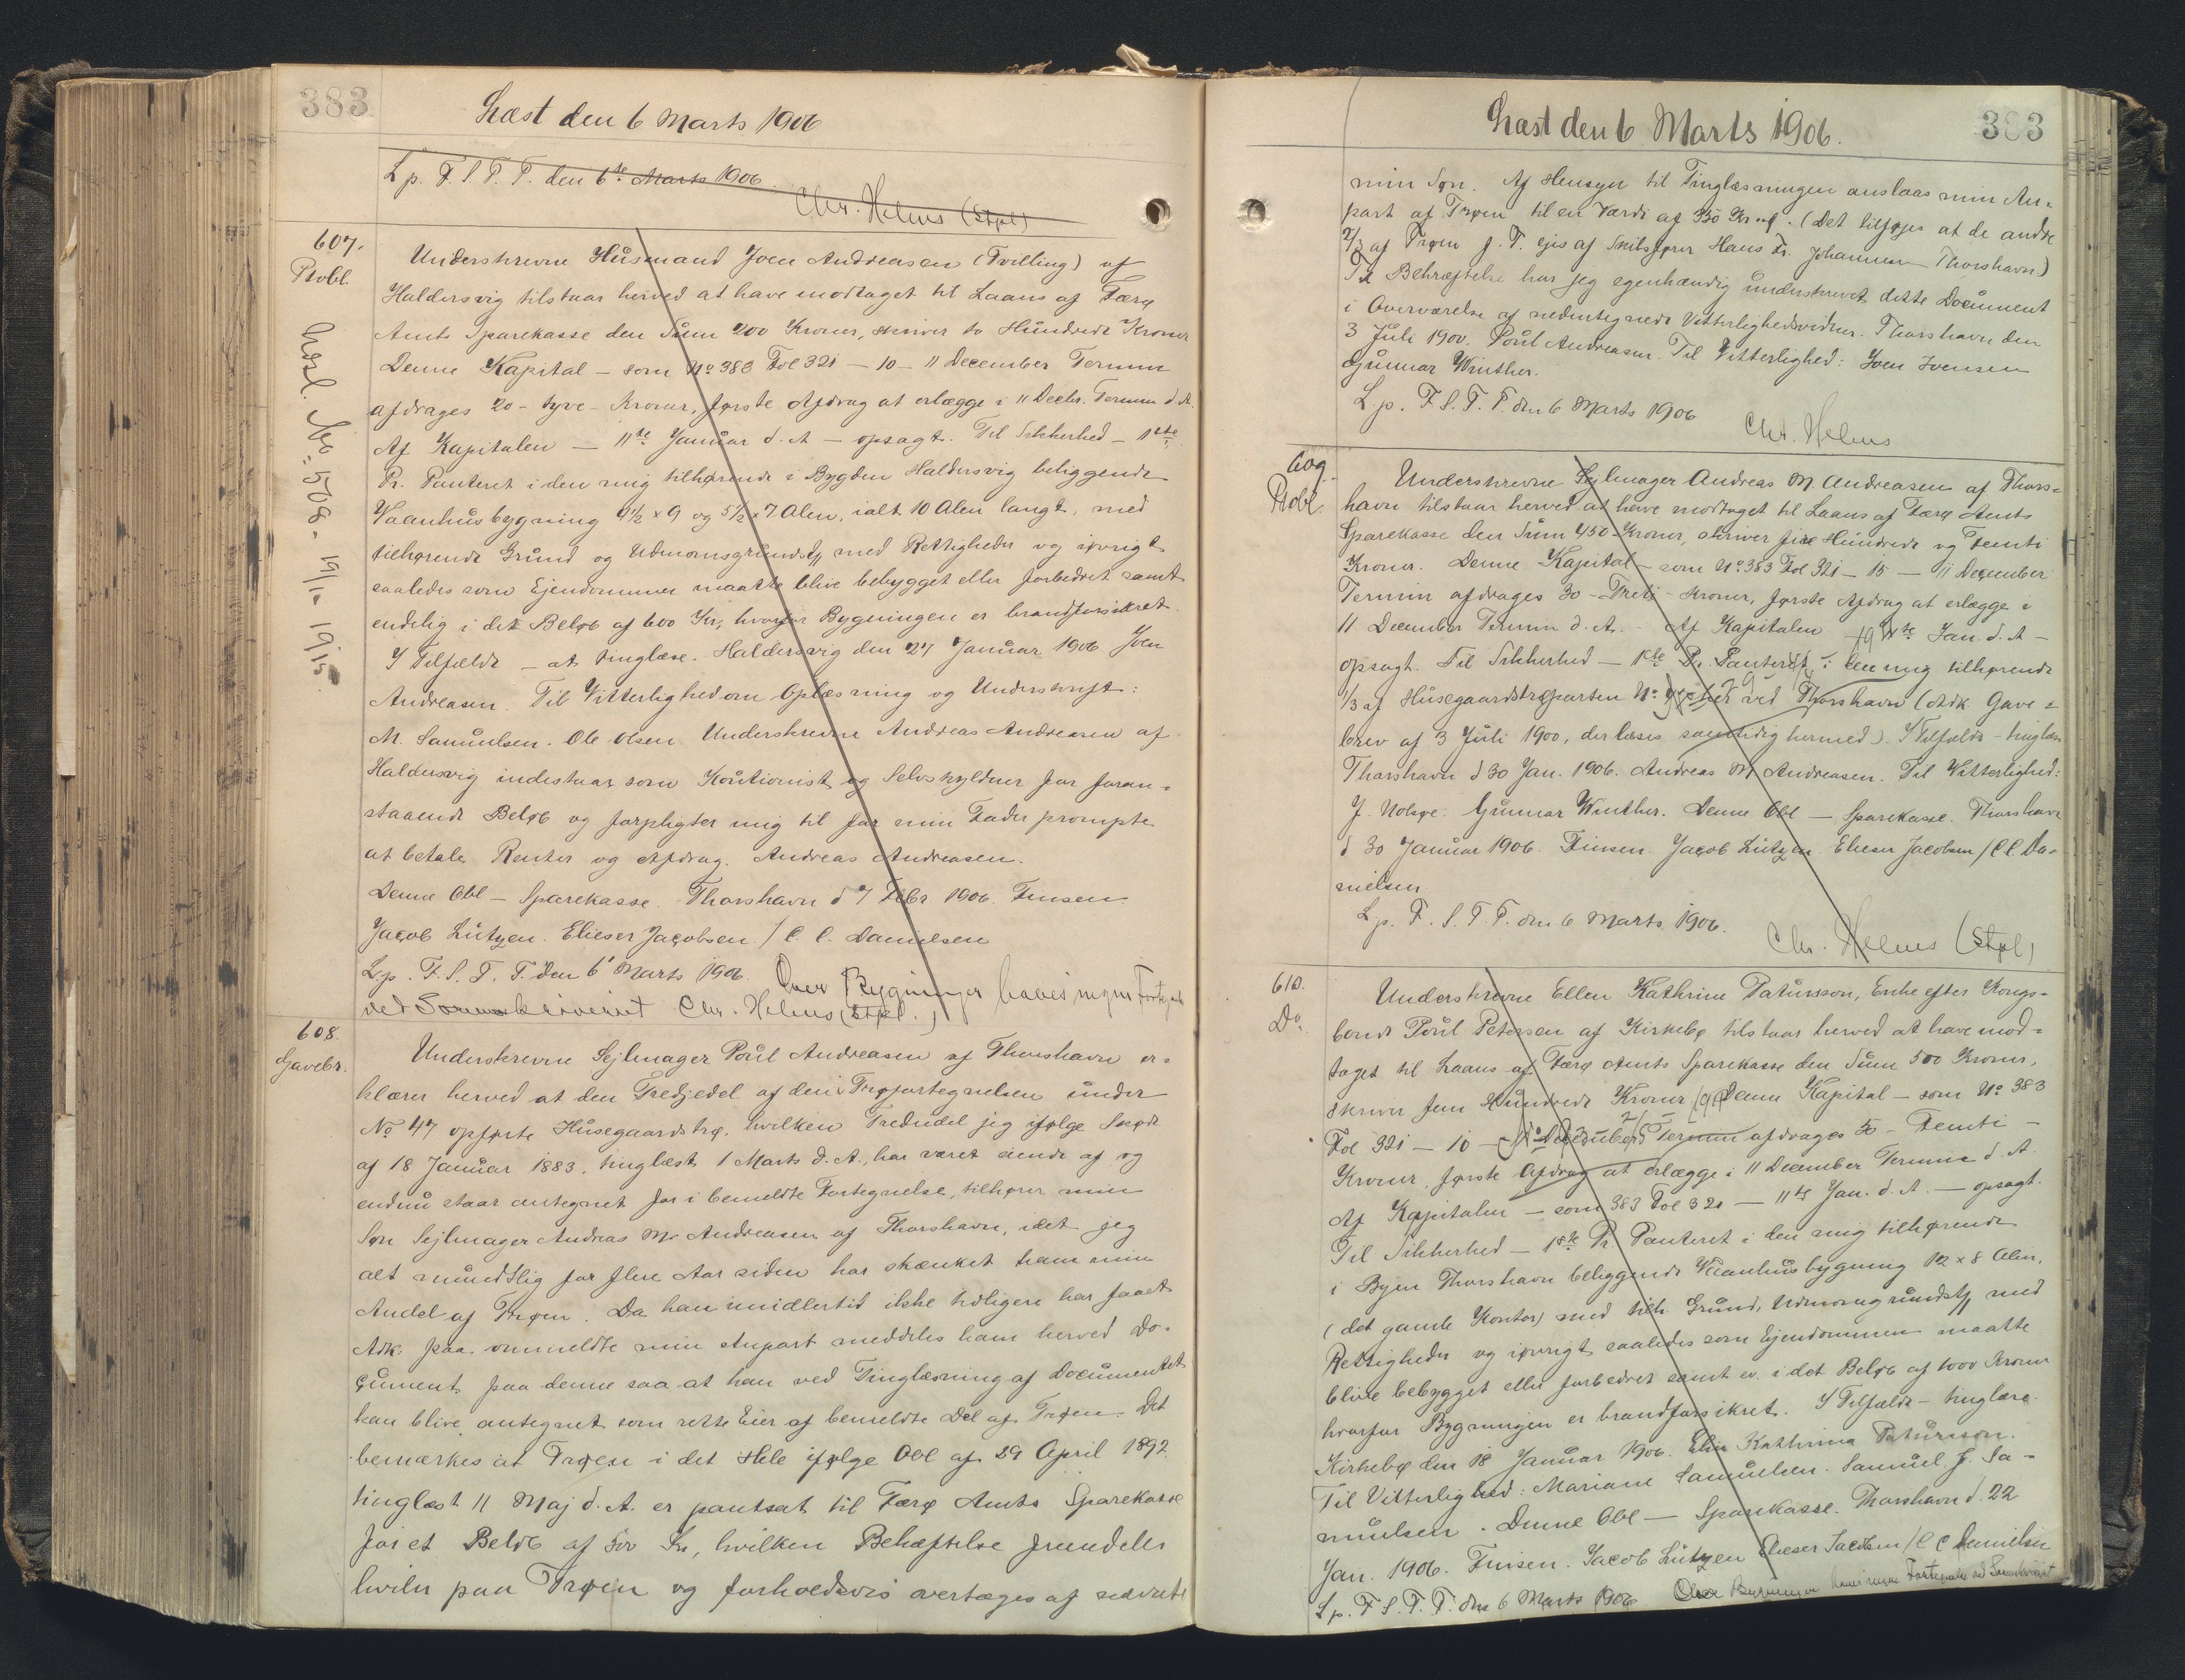 383
Læst den 6 Marts 1906
L p. F. S. T. T. den 6te Marts 1906
Chr. Helms (Stpl)
607.
Ptobl.
Underskrevne Husmand Joen Andreasen (Tvilling) af
Haldersvig tilstaar herved at have modtaget til Laans af Færø
Amts Sparekasse den Sum 200 Kroner, skriver to Hundrede Kroner
Denne Kapital – som No 383 Fol 321 – 10 – 11 December Termin
afdrages 20 – tyve – Kroner, første Afdrag at erlægge i 11 Decbr. Termin d. A.
Af Kapitalen – 11te Januar d. A – opsagt. Til Sikkerhed – 1ste
Pr. Panteret i den mig tilhørende i Bygden Haldersvig beliggende
Vaanhusbygning 4½ x 9 og 5½ x 7 Alen, ialt 10 Alen langt, med
tilhørende Grund og Udmarksgrundst, med Rettigheder og iøvrigt
saaledes som Ejendommen maatte blive bebygget eller forbedret samt
endelig i det Beløb af 600 Kr, hvorfor Bygningen er brandforsikret.
I Tilfælde – at tinglæse. Haldersvig den 27 Januar 1906 Joen
Andreasen. Til Vitterlighed om Oplæsning og Underskrift:
M. Samuelsen. Ole Olsen. Underskrevne Andreas Andreasen af
Haldersvig indestaar som Kautionist og Selvskyldner for foran=
staaende Beløb og forpligter mig til for min Fader prompte
at betale Renter og Afdrag. Andreas Andreasen.
Denne Obl – Sparekasse. Thorshavn d 7 Febr 1906. Finsen.
Jacob Lützen. Elieser Jacobsen / C. C. Danielsen
L.p. F. S. T. T. den 6' Marts 1906. Over Bygninger haves ingen Fortegnelse
ved Sorenskriveriet Chr. Helms (Stpl.)
608.
Gavebr.
Underskrevne Sejlmager Poul Andreasen af Thorshavn er=
klærer herved at den Tredjedel af den i Trøfortegnelsen under
No 47 opførte Husegaardstrø, hvilken Trededel jeg ifølge Skøde
af 18 Januar 1883, tinglæst 1 Marts d. A., har været eiende af og
endnu staar antegnet for i bemeldte Fortegnelse, tilhører min
Søn Sejlmager Andreas M. Andreasen af Thorshavn, idet jeg
alt mundtlig for flere Aar siden har skænket ham min
Andel af Trøen. Da han imidlertid ikke tidligere har faaet
Adk. paa ommeldte min Anpart meddeles ham herved Do-
cument paa denne saa at han ved Tinglæsning af Documentet
kan blive antegnet som rette Eier af bemeldte Del af Trøen. Det
bemærkes at Trøen i det Hele ifølge Obl af 29 April 1892
tinglæst 11 Maj d. A. er pantsat til Færø Amts Sparekasse
for et Beløb af 500 Kr, hvilken Behæftelse fremdeles
hviler paa Trøen og forholdsvis overtages af sidstnte
hosl. No: 508 - 19/1- 1915
Læst den 6 Marts 1906.
383
min Søn. Af Hensyn til Tinglæsningen anslaas min An=
part af Trøen til en Værdi af 350 Kr. (Det tilføjes at de andre
2/3 af Trøen f. T. ejes af Skibsfører Hans Fr. Johannesen Thorshavn)
Til Bekræftelse har jeg egenhændig underskrevet dette Document
i Overværelse af nedentegnede Vitterlighedsvidner. Thorshavn den
3 Juli 1900. Poul Andreasen. Til Vitterlighed: Joen Joensen
Gunnar Winther.
L. p. F. S. T. T. den 6 Marts 1906
Chr. Helms
609.
Ptobl.
Underskrevne Sejlmager Andreas M. Andreasen af Thors=
havn tilstaar herved at have modtaget til Laans af Færø Amts
Sparekasse den Sum 450 Kroner, skriver fire Hundrede og Femti
Kroner. Denne Kapital – som No 383 Fol 321 – 15 – 11 December
Termin afdrages 30 – Treti – Kroner, første Afdrag at erlægge i
11 December Termin d. A. – Af Kapitalen 11te Jan. d. A –
opsagt. Til Sikkerhed – 1ste Pr. Panteret i den mig tilhørende
1/3 af Husegaardstrøparten No ved Thorshavn (Adk Gave=
brev af 3 Juli 1900, der læses samtidig hermed). I Tilfælde – tinglæse
Thorshavn d 30 Jan. 1906. Andreas M Andreasen. Til Vitterlighed:
J. Nolsøe. Gunnar Winther. Denne Obl – Sparekasse. Thorshavn
d 30 Januar 1906. Finsen. Jacob Lützen. Elieser Jacobsen / C C Da=
nielsen
L. p. F. S. T. T. den 6 Marts 1906.
Chr. Helms (Stpl)
610.
Do.
Underskrevne Ellen Kathrine Patursson, Enke efter Kongs=
bonde Poul Petersen af Kirkebø tilstaar herved at have mod=
taget til Laans af Færø Amts Sparekasse den Sum 500 Kroner,
skriver fem Hundrede Kroner. Denne Kapital – som No 383
Fol 321 – 10 – 11 December Termin afdrages 50 – Femti –
Kroner, første Afdrag at erlægge i 11 December Termin d. A.
Af Kapitalen – som 383 Fol 321 – 11te Jan. d. A. – opsagt.
Til Sikkerhed – 1ste Pr. Panteret i den mig tilhørende
i Byen Thorshavn beliggende Vaanhusbygning 12 x 8 Alen,
(det gamle Kontor) med tilh. Grund, Udmarksgrundst, med
Rettigheder og iøvrigt saaledes som Ejendommen maatte
blive bebygget eller forbedret samt ev. i det Beløb af 1000 Kroner
hvorfor Bygningen er brandforsikret. I Tilfælde – tinglæse.
Kirkebø den 18 Januar 1906. Elin Kathrina Patursson.
Til Vitterlighed: Mariane Samuelsen. Samuel J. Sa-
muelsen. Denne Obl – Sparekasse. Thorshavn d. 22
Jan. 1906. Finsen. Jacob Lützen Elieser Jacobsen / C C Danielsen
L. p. F. S. T. T. den 6 Marts 1906 Over Bygninger haves ingen Fortegnelse ved Sorenskriveriet